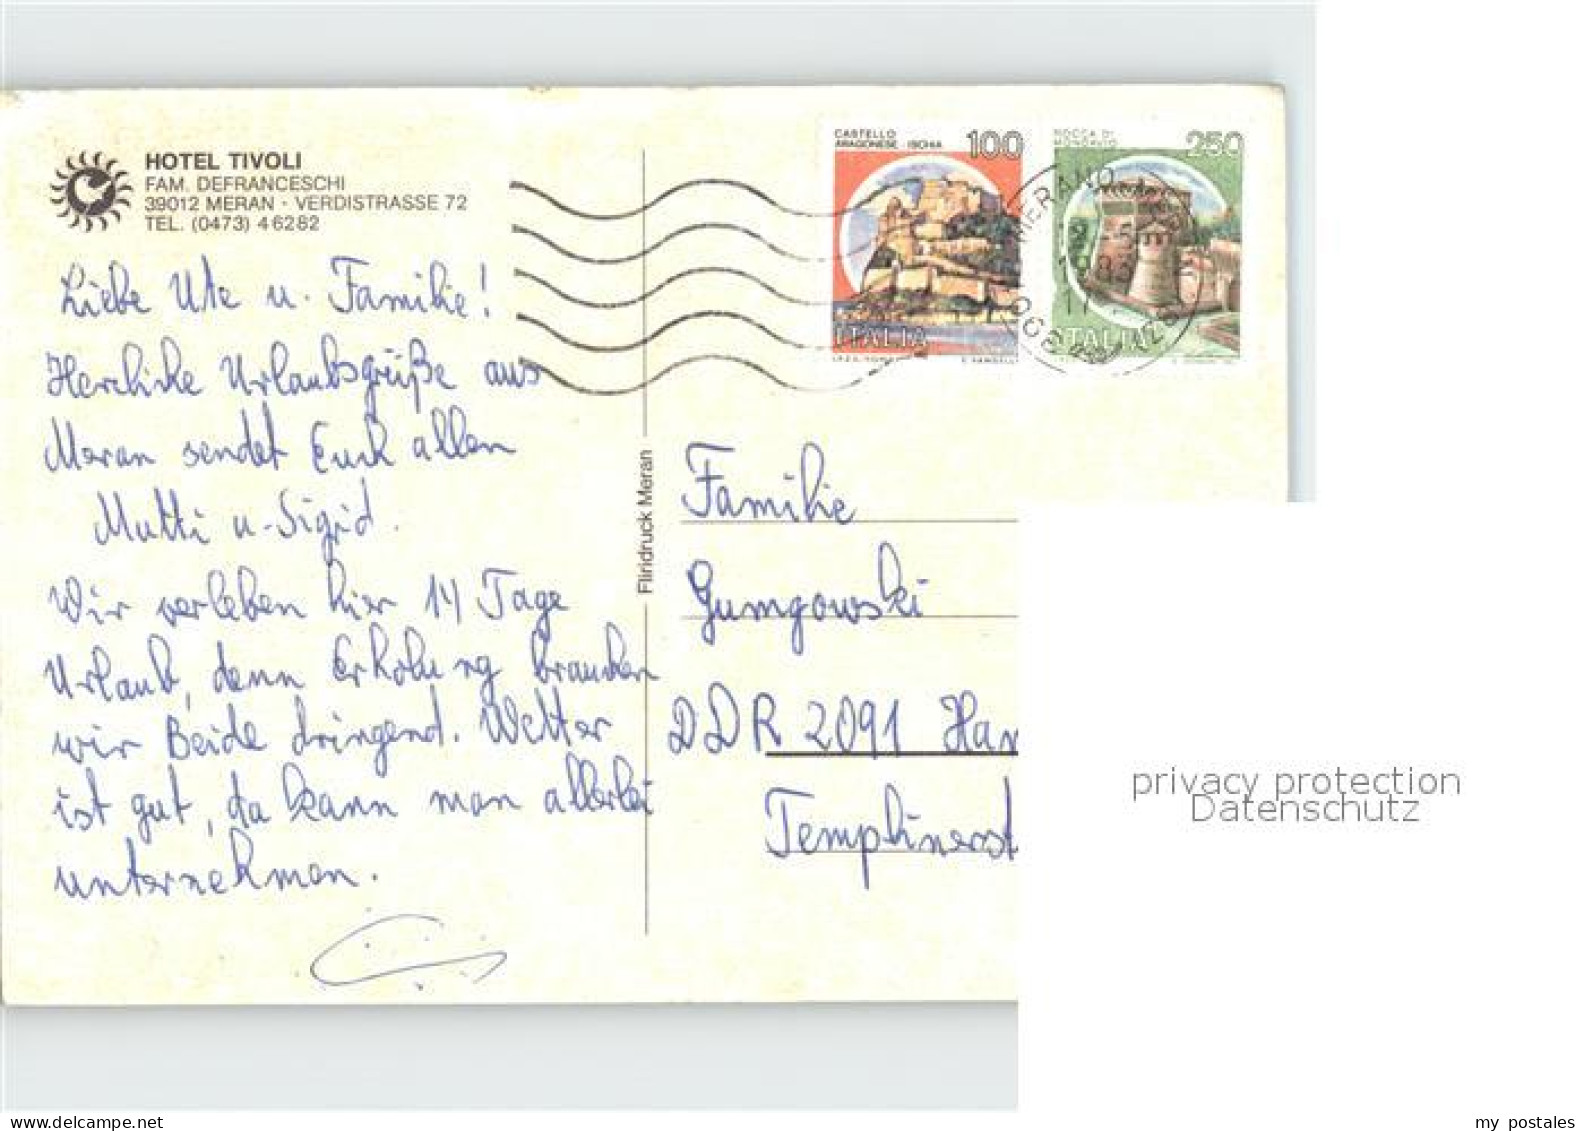 HOTEL TIVOLI
FAM. DEFRANCESCHI
39012 MERAN - VERDISTRASSE 72
TEL. (0473) 46282
Liebe Ute u. Familie!
Herzliche Urlaubsgrüße aus
Meran sendet Euch allen
Mutti u. Sigrid.
Wir verleben hier 14 Tage
Urlaub, denn Erholung brauchen
wir Beide dringend. Wetter
ist gut, da kann man allerlei
unternehmen.
Fliridruck Meran
CASTELLO
ARAGONESE - ISCHIA
100
ITALIA
ROCCA DI
MONDAVIO
250
ITALIA
MERANO
Familie
Gumgowski
DDR 2091 Han
Templinerst
privacy protection
Datenschutz
https://www.delcampe.net
my postales